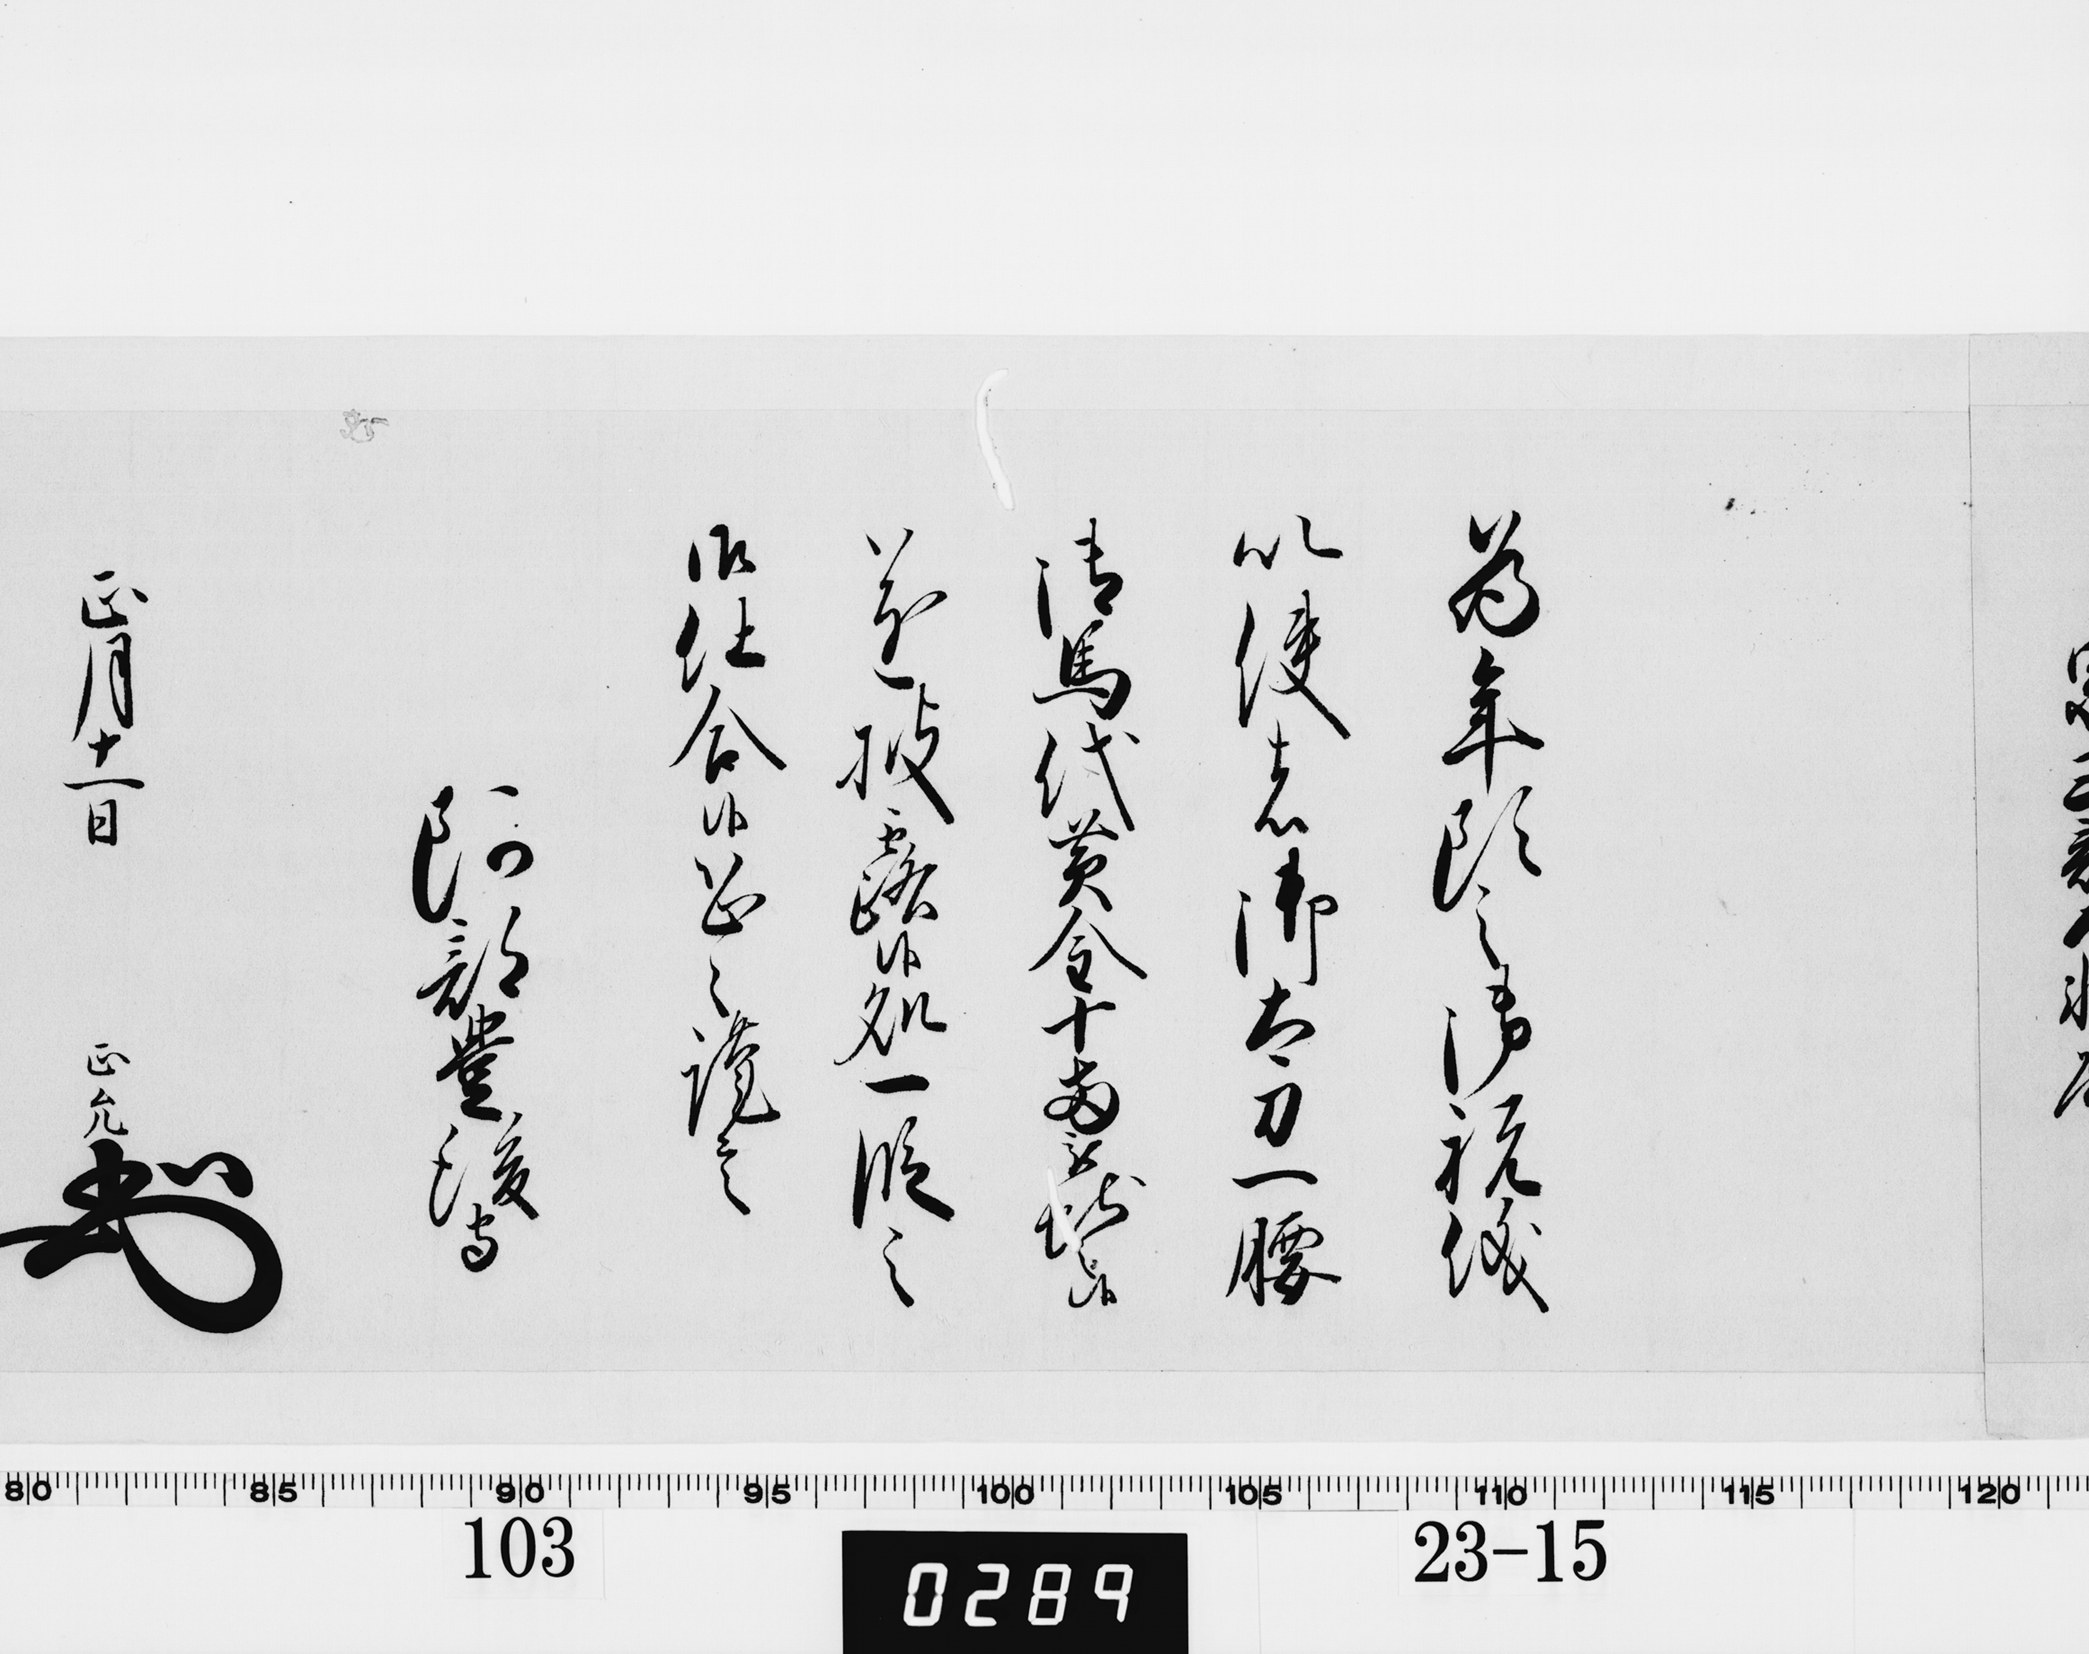 為年頭之御祝儀
以使者御太刀一腰
御馬代黄金十両被献候
遂披露候処一段之
御仕合候恐々謹言
阿部豊後守
正月十一日 正允
80 85 90 95 100 105 110 115 120
103 23-15
0289